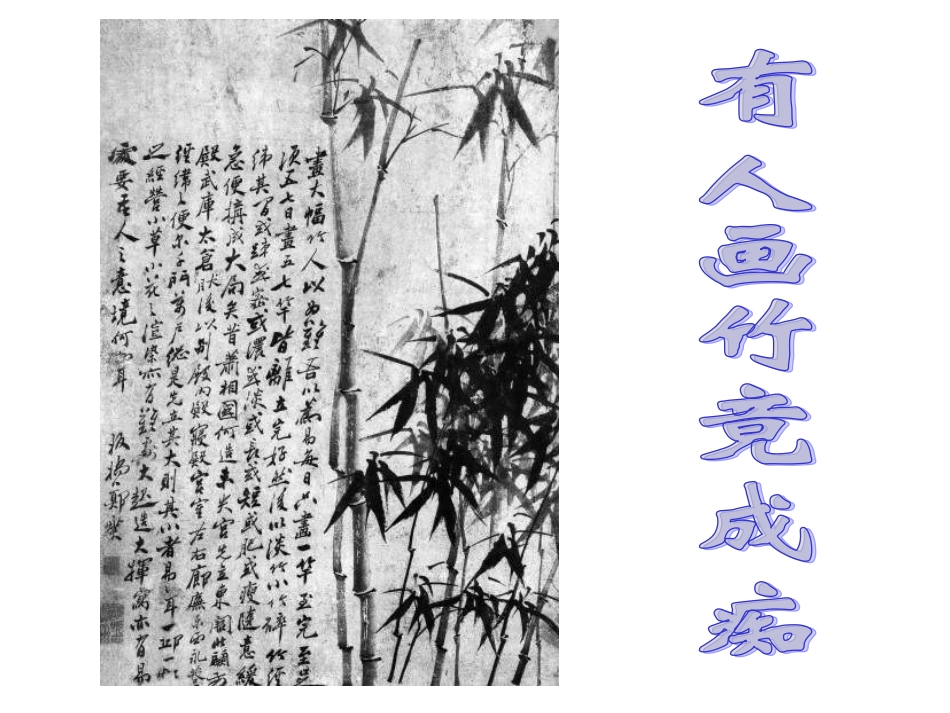 有人画竹竟成痴
畫大幅竹人以為難吾以為易每日只畫一竿至完至足
須五七日畫五七竿皆離立完好然後以淡竹小竹碎竹經
緯其間或疎或密或濃或淡或長或短或肥或瘦隨意緩
急便構成大局矣昔蕭相國何造未央宮先立東闕北闕前
殿武庫太倉然後以別殿內殿寢殿宮室左右廊廡東西永巷
經緯之便尔千門萬戶總是先立其大則其小者易易耳一邱一壑
之經營小草小花之渲染亦有難處大起造大揮寫亦有易
處要在人之意境何如耳
板橋鄭燮